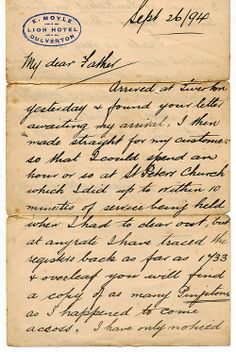 E. MOYLE
LION HOTEL
DULVERTON
Sept 26/94
My dear Father
Arrived at Tiverton
yesterday & found your letter
awaiting my arrival. I then
made straight for my customers
so that I could spend an
hour or so at St Peters Church
which I did up to within 10
minutes of service being held
when I had to clear out, but
at anyrate I have traced the
registers back as far as 1733
& overleaf you will find
a copy of as many
as I happened to come
across. I have only noticed